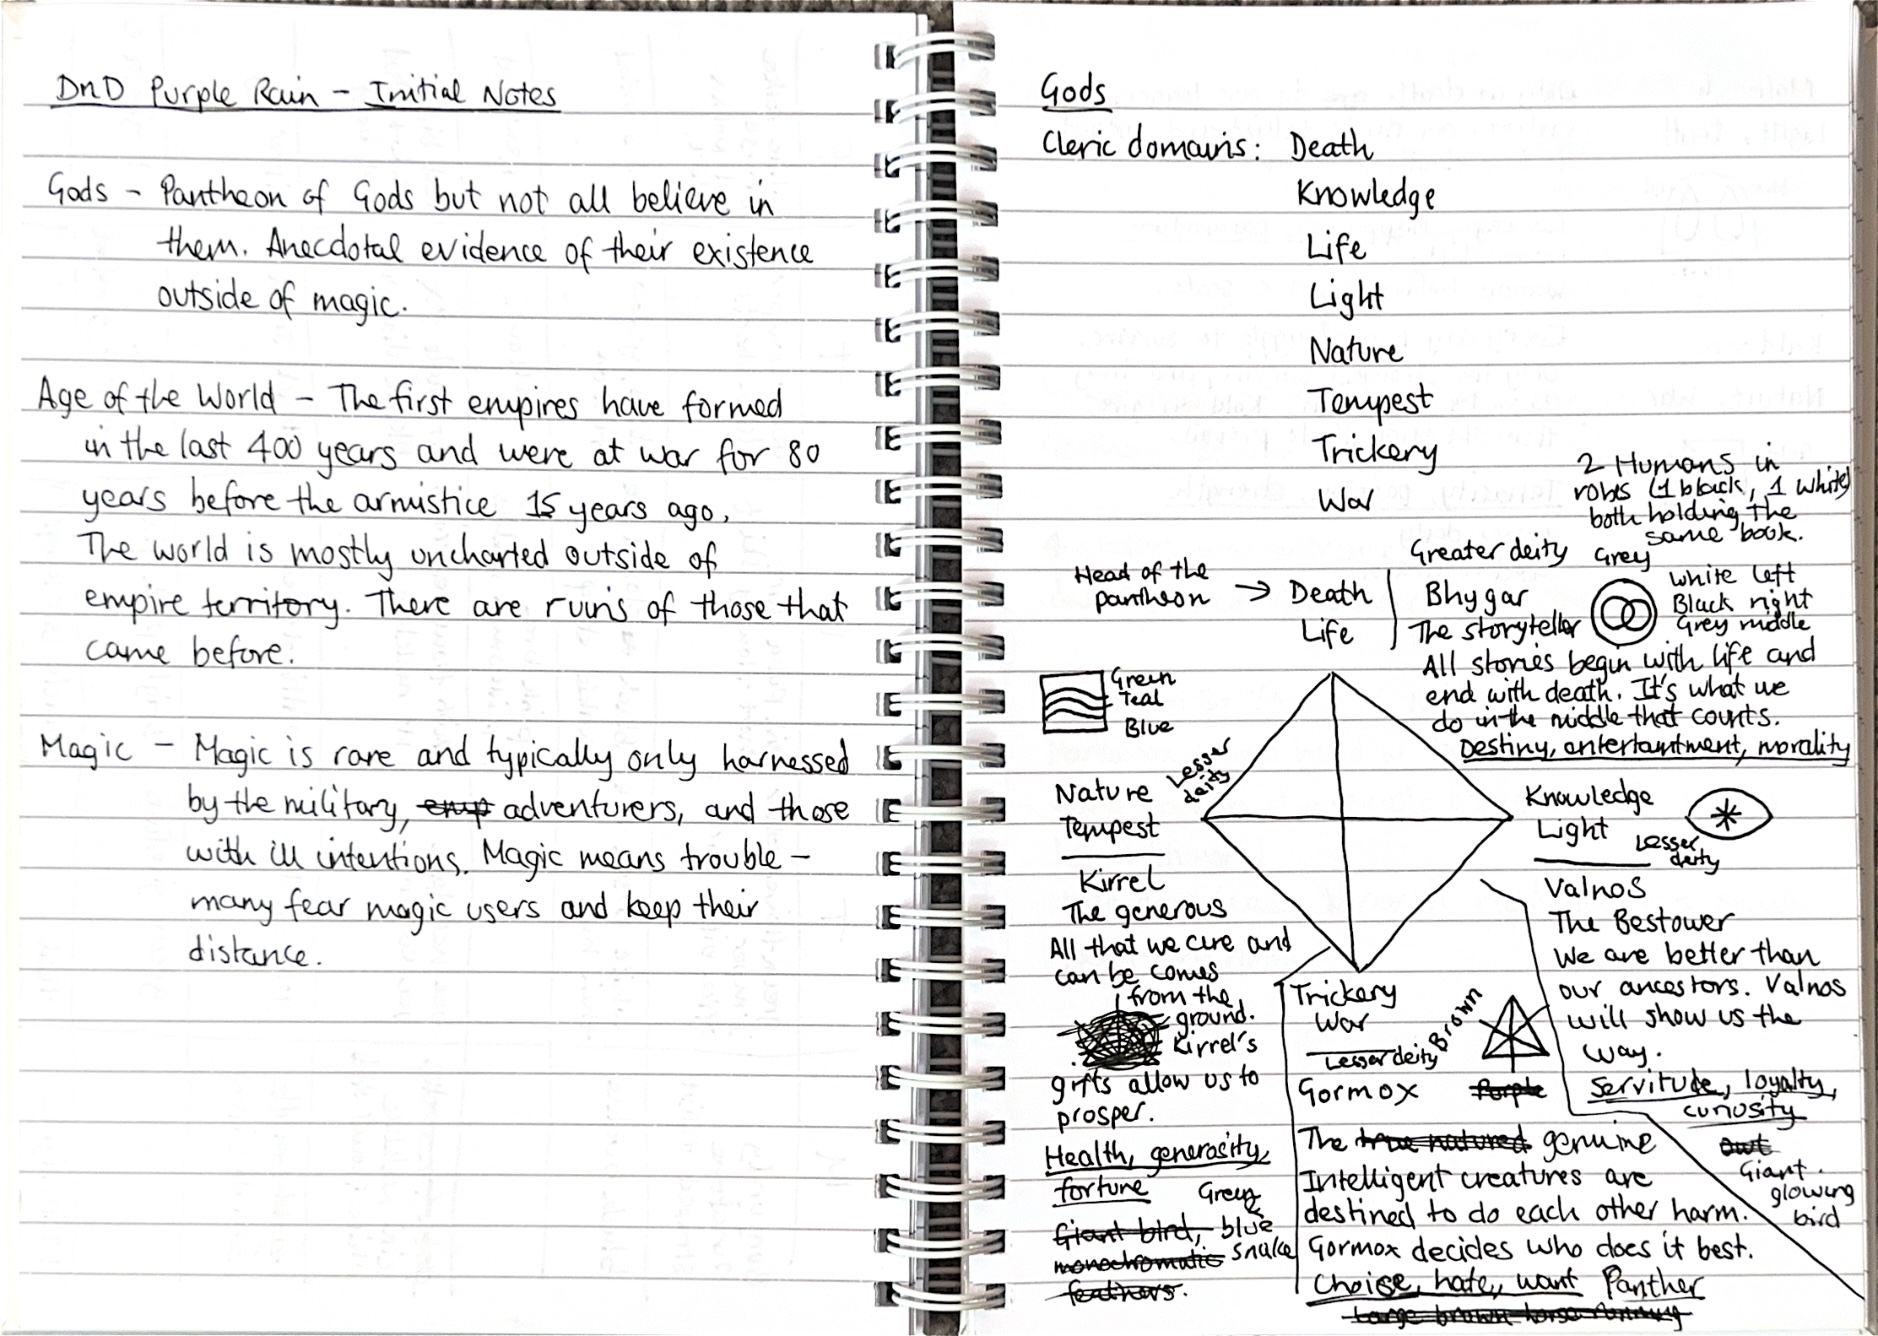 DnD Purple Rain - Initial Notes
Gods - Pantheon of Gods but not all believe in
them. Anecdotal evidence of their existence
outside of magic.
Age of the World - The first empires have formed
in the last 400 years and were at war for 80
years before the armistice 15 years ago.
The world is mostly uncharted outside of
empire territory. There are ruins of those that
came before.
Magic - Magic is rare and typically only harnessed
by the military, emp adventurers, and those
with ill intentions. Magic means trouble -
many fear magic users and keep their
distance.
Gods
Cleric domains: Death
Knowledge
Life
Light
Nature
Tempest
Trickery
War
2 Humans in
robes (1 black, 1 white)
both holding the
same book.
Head of the
pantheon →
Death
Life
Greater deity
Bhygar
The storyteller
Grey
White left
Black right
Grey middle
All stories begin with life and
end with death. It's what we
do in the middle that counts.
Destiny, entertaintment, morality
Green
Teal
Blue
Lesser
deity
Nature
Tempest
Kirrel
The generous
All that we are and
can be comes
from the
ground.
Kirrel's
gifts allow us to
prosper.
Health, generosity,
fortune
Giant bird,
monochromatic
feathers.
Green
blue
snake
Knowledge
Light
Lesser
deity
Valnos
The Bestower
We are better than
our ancestors. Valnos
will show us the
way.
Servitude, loyalty,
curiosity
owt
Giant
glowing
bird
Trickery
War
Lesser deity
Brown
Gormox
Purple
The true natured genuine
Intelligent creatures are
destined to do each other harm.
Gormox decides who does it best.
Choise, hate, want Panther
Large brown horse running